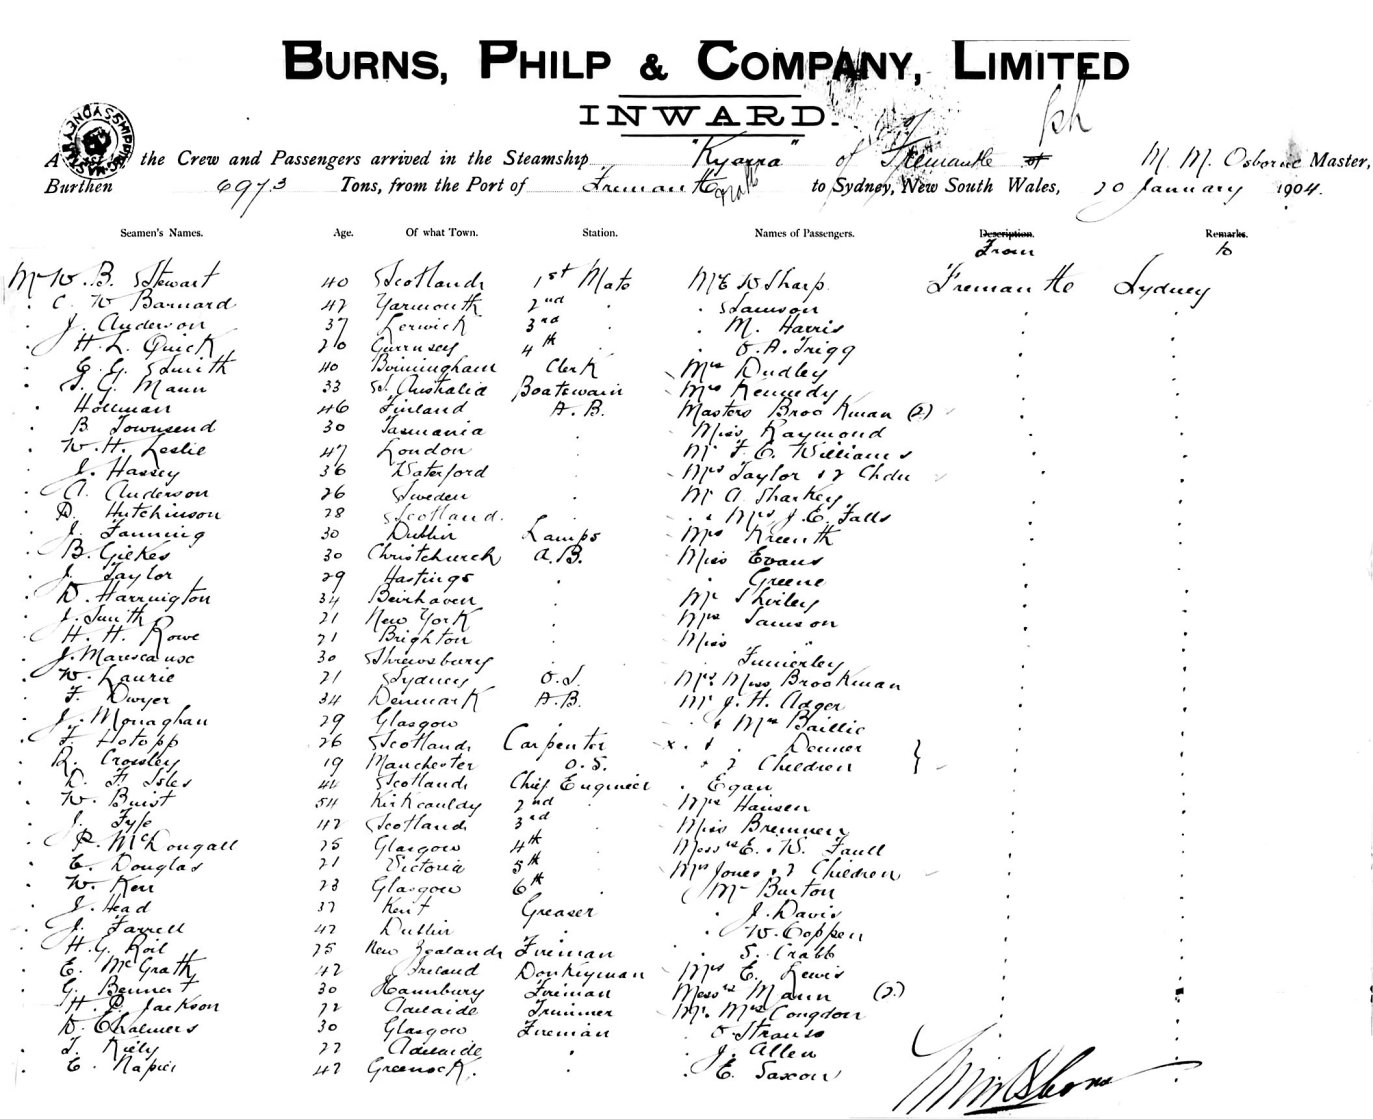 BURNS, PHILP & COMPANY, LIMITED
INWARD.
A the Crew and Passengers arrived in the Steamship "Kyarra" of Fremantle M. M. Osborne Master,
Burthen 6973 Tons, from the Port of Fremantle to Sydney, New South Wales, 20 January 1904.
Seamen's Names. Age. Of what Town. Station. Names of Passengers. Description. Remarks.
From to
Mr W. B. Stewart 40 Scotland 1st Mate Mr E W Sharp Fremantle Sydney
" C. W Barnard 42 Yarmouth 2nd " " Samson " "
" J. Anderson 37 Lerwick 3rd " " M. Harris " "
" H. L. Quick 26 Guernsey 4th " " O. A. Trigg " "
" G. G. Smith 40 Birmingham Clerk Mrs Dudley " "
" T. G. Mann 33 St. Australia Boatswain Mrs Kennedy " "
" Hollman 46 Finland A. B. Masters Brookman (2) " "
" B. Townsend 30 Tasmania " Miss Raymond " "
" W. H. Leslie 47 London " Mr F. E. Williams " "
" J. Hassey 36 Waterford " Mrs Taylor & 2 Chdn " "
" A. Anderson 26 Sweden " Mr A. Sharkey " "
" D. Hutchinson 28 Scotland. " " " Mrs J. E. Falls " "
" J. Fanning 30 Dublin Lamps Mrs " "
" B. Gickes 30 Christchurch A. B. Miss Evans " "
" J. Taylor 29 Hastings " " Greene " "
" D. Harrington 34 Beirhaven " Mr Shirley " "
" J. Smith 21 New York " Mrs Samson " "
" H. H. Rowe 21 Brighton " Miss " " "
" J. Marescaux 30 Shrewsbury " " " "
" W. Laurie 21 Sydney O. S. Mrs. Miss Brookman " "
" F. Dwyer 34 Denmark A. B. Mr J. H. Adger " "
" J. Monaghan 29 Glasgow " " & Mrs Baillie " "
" F. Hotopp 26 Scotland Carpenter x " & " Denner " "
" R. Crossley 19 Manchester O. S. " & 2 Children } " "
" D. F. Isles 44 Scotland Chief Engineer " Egan " "
" W. Buist 54 Kirkcauldy 2nd " Mrs Hansen " "
" J. Fyfe 42 Scotland 3rd " Miss Bremner " "
" P. McDougall 25 Glasgow 4th " Messrs E. & W. Faull " "
" E. Douglas 21 Victoria 5th " Mrs Jones & 2 Children " "
" W. Kerr 23 Glasgow 6th " Mr Burton " "
" J. Head 37 Kent Greaser " J. Davis " "
" J. Farrell 42 Dublin " " W. Coppen " "
" H. G. Roil 25 New Zealand Fireman " S. Crabb " "
" E. McGrath 42 Ireland Donkeyman Mrs E. Lewis " "
" G. Bennett 30 Fireman Messrs Mann (2) " "
" H. P. Jackson 22 Adelaide Trimmer Mr. Mrs Congdon " "
" D. Chalmers 30 Glasgow Fireman " O. Strauss " "
" T. Kiely 22 Adelaide " " J. Allen " "
" E. Napier 42 Greenock. " " E. Saxon " "